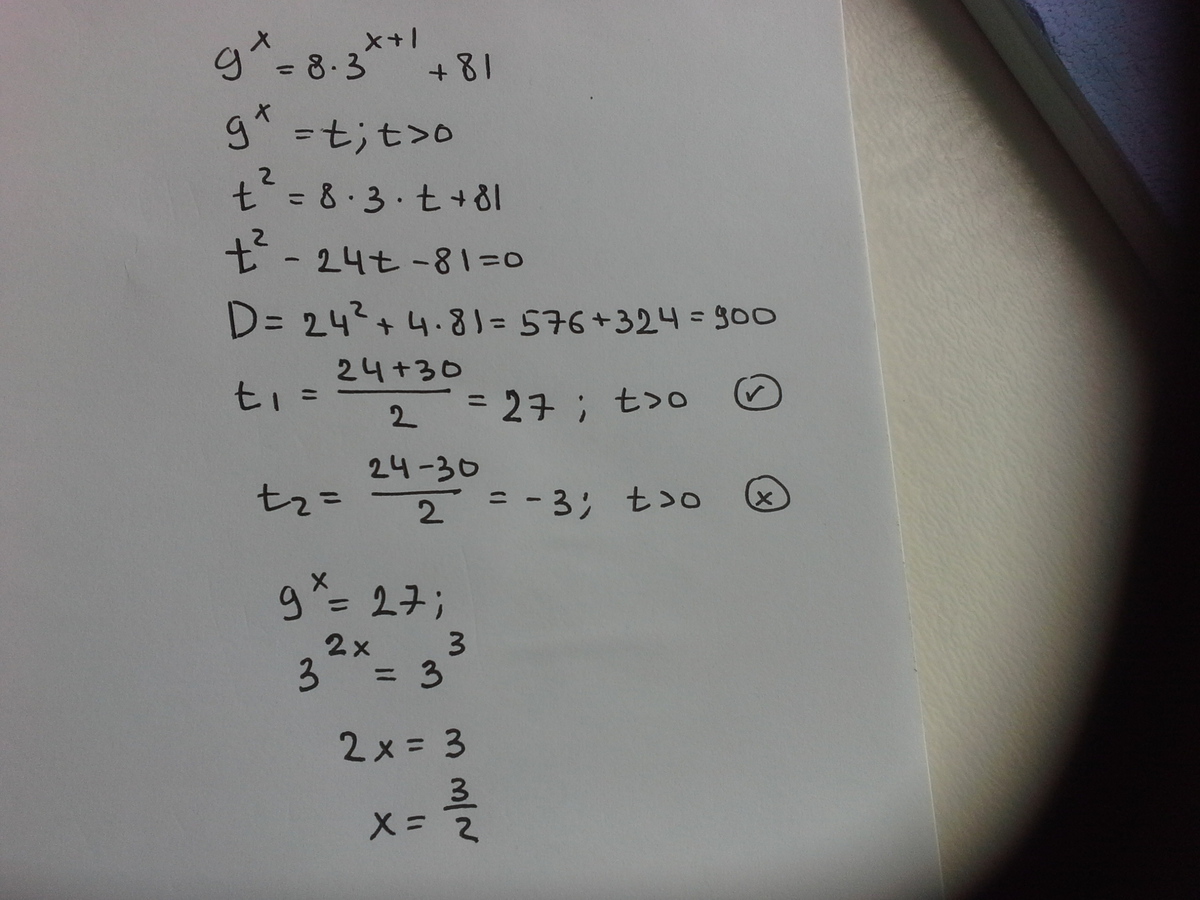 9^x = 8·3^{x+1} + 81
9^x = t; t>0
t^2 = 8·3·t+81
t^2 - 24t - 81=0
D= 24^2 + 4·81= 576+324 = 900
t_1 = \frac{24+30}{2} = 27 ; t>0 ✓
t_2 = \frac{24-30}{2} = -3; t>0 x
9^x = 27;
3^{2x} = 3^3
2x = 3
x = \frac{3}{2}